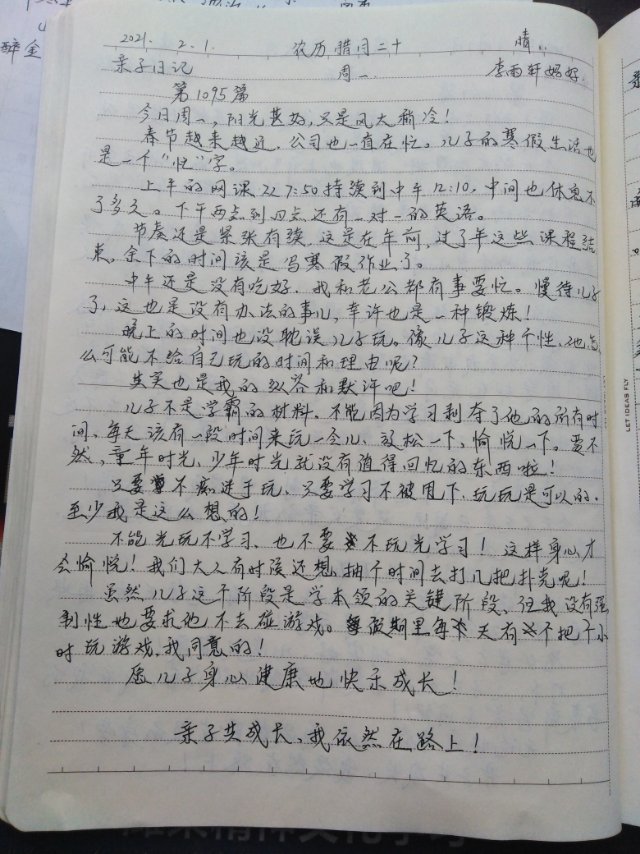 醉金
2021. 2.1. 农历腊月二十 晴
亲子日记 周一. 李雨轩妈妈
第1095篇
今日周一,阳光甚好,只是风大稍冷!
春节越来越近,公司也一直在忙。儿子的寒假生活也
是一个"忙"字。
上午的网课从7:50持续到中午12:10,中间也休息不
了多久。下午两点到四点还有一对一的英语。
节奏还是紧张有续,这是在年前,过了年这些课程结
束,余下的时间该是写寒假作业了。
中午还是没有吃好,我和老公都有事要忙。慢待儿子
了,这也是没有办法的事儿,幸许也是一种锻炼!
晚上的时间也没耽误儿子玩。像儿子这种个性,他怎
么可能不给自己玩的时间和理由呢?
其实也是我的纵容和默许吧!
儿子不是学霸的材料,不能因为学习剥夺了他的所有时
间,每天该有一段时间来玩一会儿,放松一下,愉悦一下。要不
然,童年时光,少年时光就没有值得回忆的东西啦!
只要不痴迷于玩,只要学习不被甩下,玩玩是可以的.
至少我是这么想的!
不能光玩不学习,也不要不玩光学习!这样身心才
会愉悦!我们大人有时候还想抽个时间去打几把扑克呢!
虽然儿子这个阶段是学本领的关键阶段,但我没有强
制性地要求他不去碰游戏。假期里每天有个把个小
时玩游戏,我同意的!
愿儿子身心健康地快乐成长!
亲子共成长,我依然在路上!
LET IDEAS FLY